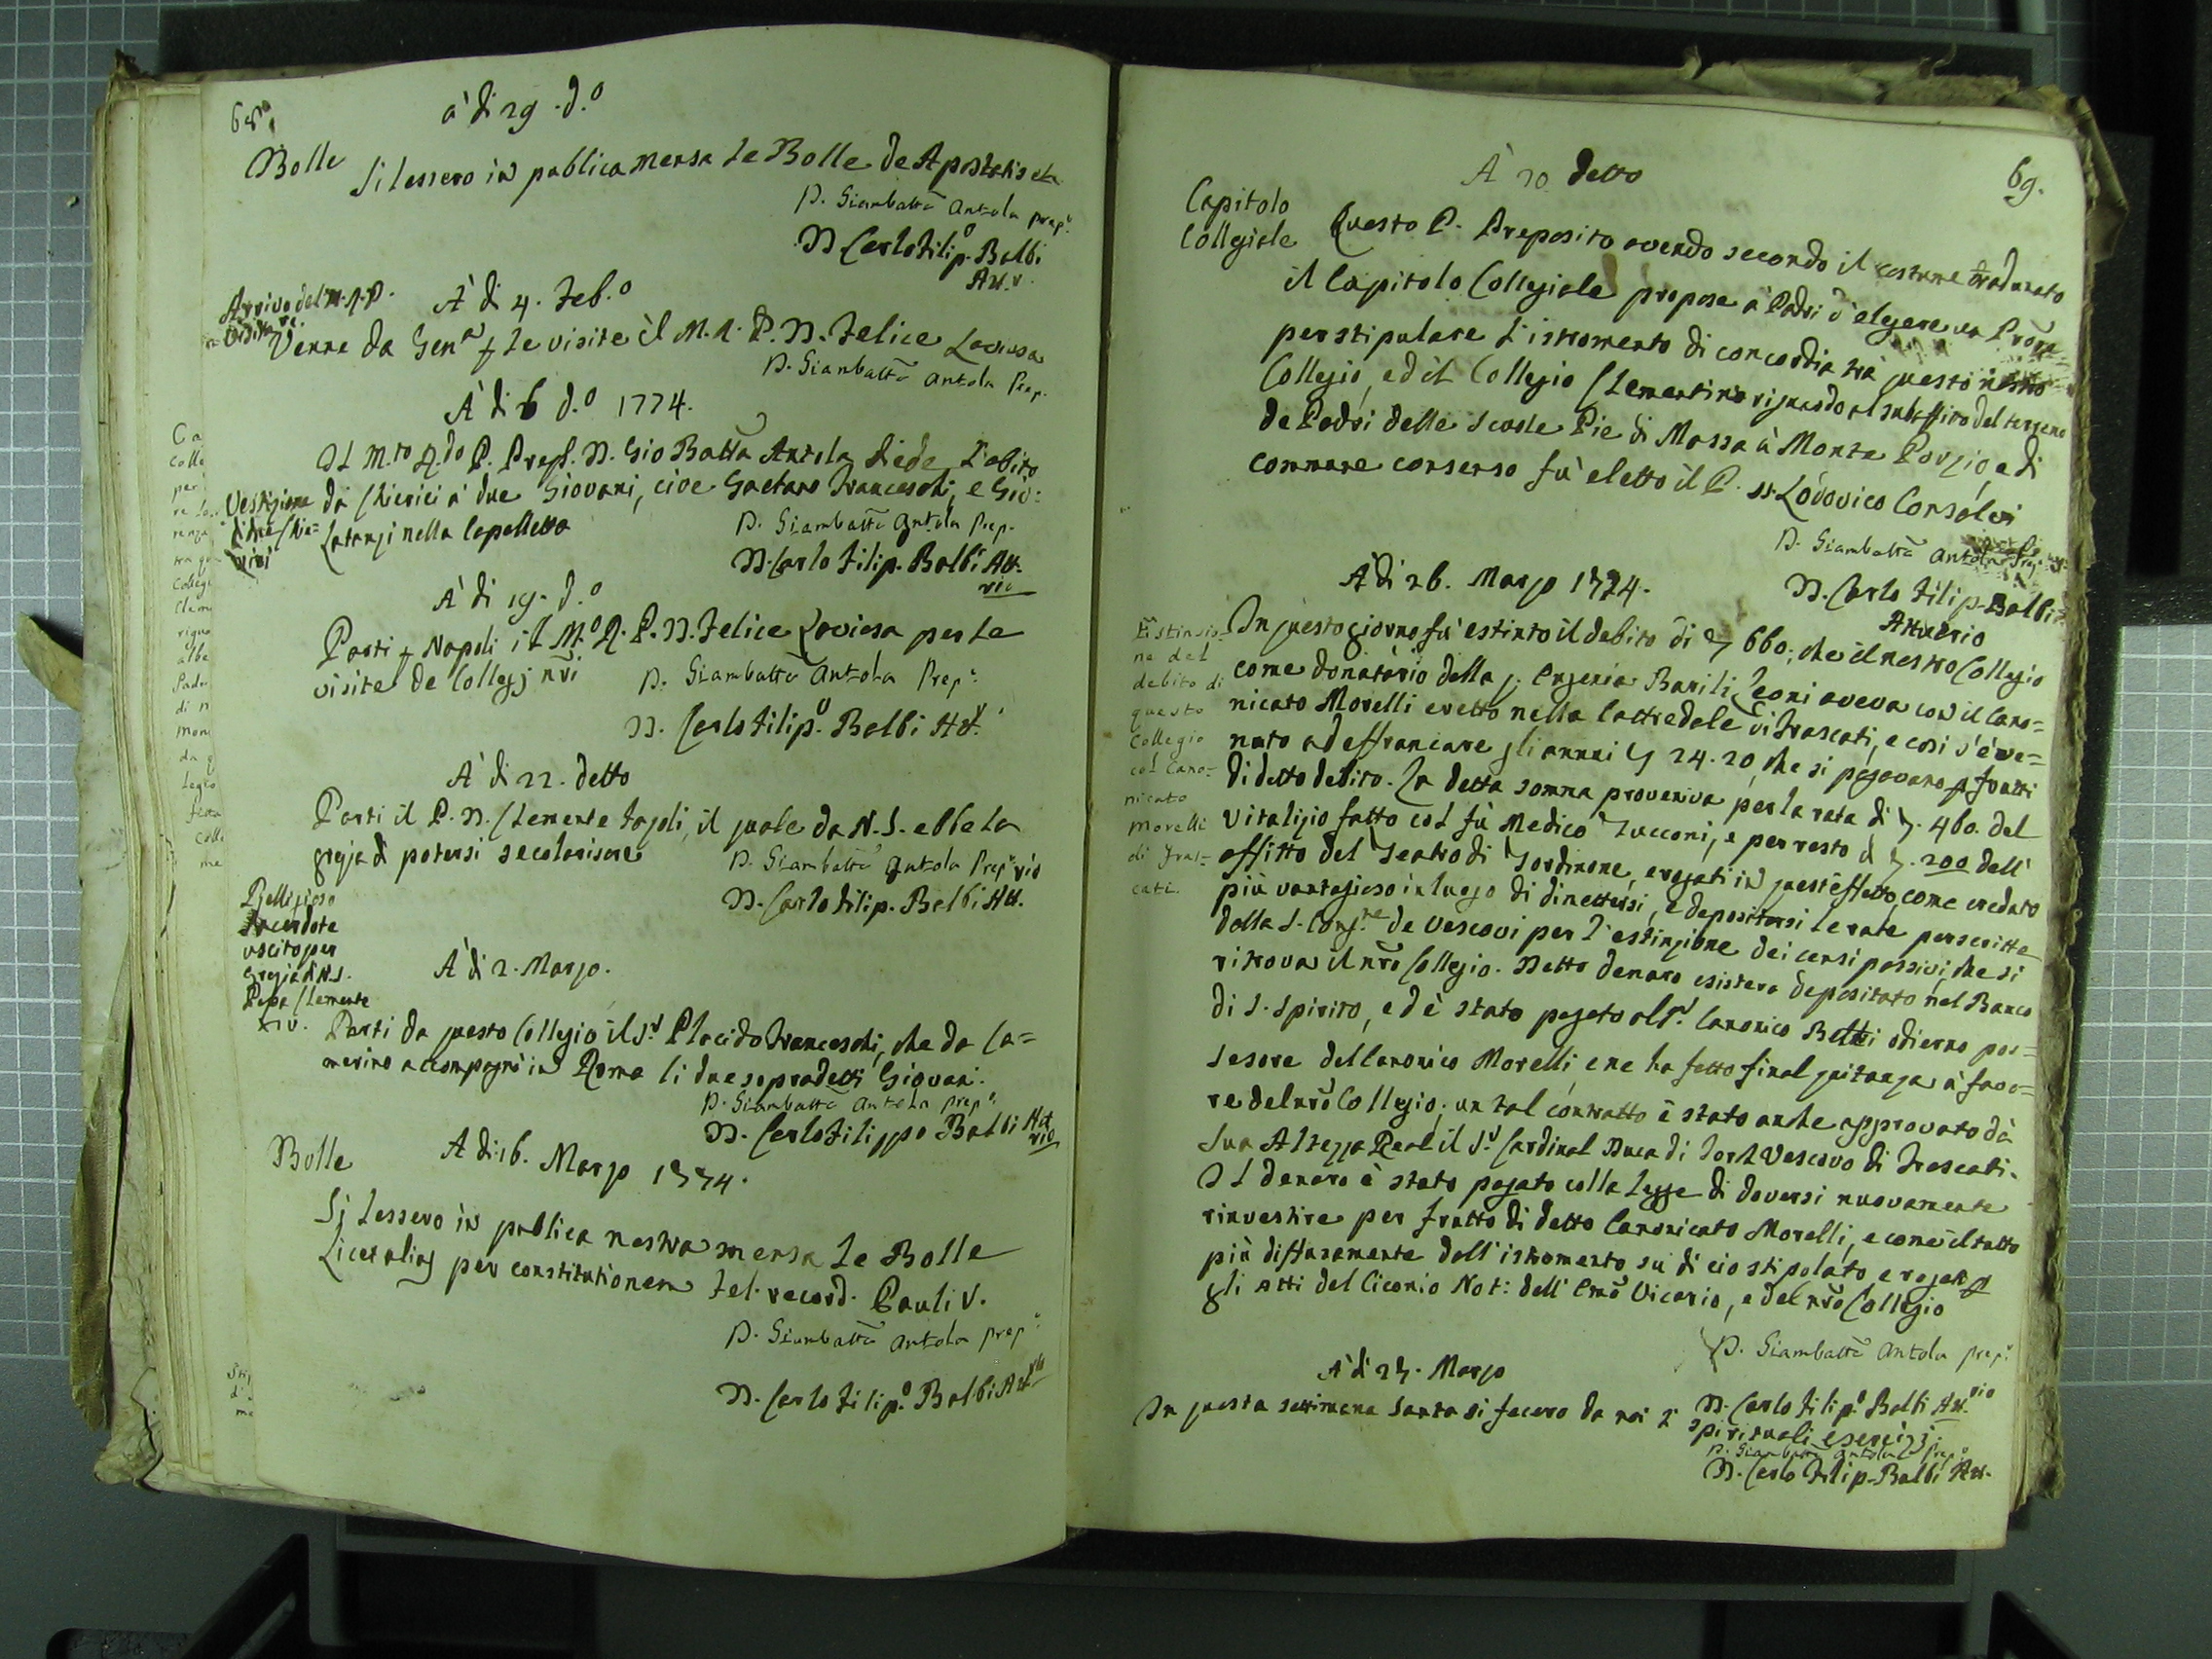 68.
à dì 29. d.º
Bolle
Si lessero in publica mensa le Bolle de Apostatis
D. Giambatta Antola prep.º
D. Carlo Filip.º Balbi
Att.º
Arrivo del M.R.P.
À di 4. Feb.º
Venne da Genª p le visite il M. R. P. D. Felice Laviosa
D. Giambatta Antola Prep.
À di 6 d.º 1774.
Il M.to R.do P. Prep.º D. Gio Batta Antola diede l'abito
Vestizione
di due Chie=
rici
da Chierici à due Giovani, cioe Gaetano Franceschi, e Gio:
Catanzi nella Capelletta
D. Giambatta Antola Prep.
D. Carlo Filip. Balbi Att.
rio
À di 19. d.º
Partì p Napoli il M.º R. P. D. Felice Laviosa per le
visite de Collegj nri
D. Giambatta Antola Prep.º
D. Carlo Filip.º Balbi Att.
À di 22. detto
Partì il P. D. Clemente, il quale da N. S. ebbe la
grazia di potersi secolarisare
D. Giambatta Antola Prep.º
D. Carlo Filip. Balbi Att.
rio
Relligioso
Sacerdote
uscito per
Grazia di N.S.
Papa Clemente
XIV.
À di 2. Marzo.
Partì da questo Collegio il S.r Placido Franceschi, che da Ca=
merino accompagnò in Roma li due sopradetti Giovani.
D. Giambatta Antola prep.º
D. Carlo Filippo Balbi Att
rio
Bolle
A di 16. Marzo 1774.
Si lessero in publica nostra mensa le Bolle
Licet alias per constitutionem fel. record. Pauli V.
D. Giambatta Antola prep.º
D. Carlo Filip.º Balbi Att.rio
69.
À 20 detto
Capitolo
Collegiale
Questo P. Preposito avendo secondo il costume radunato
il Capitolo Collegiale propose a' Padri d'elegere un Procu=
per stipulare l'istromento di concordia trà questo nostro
Collegio, ed il Collegio Clementino riguardo al subaffitto del terreno
de Padri delle Scuole Pie di Massa à Monte Porzio, e di
commune consenso fù eletto il P. D. Lodovico Consolvi
D. Giambatta Antola Prep.
D. Carlo Filip. Balbi
Attuario
À di 26. Marzo 1774.
Estinzio=
ne del
debito di
questo
Collegio
col Cano=
nicato
Morelli
di Fras=
cati.
In questo giorno fù estinto il debito di 660: che il nostro Collegio
come donatario della q. Eugenia Barili Leoni aveva con il Cano=
nicato Morelli eretto nella Cattredale di Frascati, e così s'è ve=
nuto ad affrancare gli annui 24.20, che si pagavano p frutti
di detto debito. La detta somma proveniva per la rata di 460. del
Vitalizio fatto col fù Medico Zucconi, e per resto di 200 dell'
affitto del Teatro di Tordinone, erogati in quest'effetto, come creduto
più vantagioso in luogo di dimettersi, e depositarsi le rate perscritte
dalla S. Cong.ne de Vescovi per l'estinzione dei censi passivi, che si
ritrova il nrõ Collegio. Detto denaro esisteva depositato nel Banco
di S. Spirito, ed è stato pagato al Sr. Canonico Betti odierno pos=
sesore del Canonico Morelli e ne ha fatto final quitanza à favo=
re del nrõ Collegio; un tal contratto è stato anche approvato da
Sua Altezza Real il S.r Cardinal Duca di Jork Vescovo di Frascati.
Il denaro è stato pagato colla legge di doversi nuovamente
rinvestire per frutto di detto Canonicato Morelli, e come il tutto
più diffusamente dall'istromento sù di ciò stipolato e rogato p
gli Atti del Ciconio Not: dell'Emõ Vicario, e del nrõ Collegio
D. Giambatta Antola prep.º
D. Carlo Filip.º Balbi Att.rio
À di 27. Marzo
In questa settimana Santa si fecero da noi l'
spirituali esercizj.
D. Giambatta Antola Prep.º
D. Carlo Filip. Balbi Att.